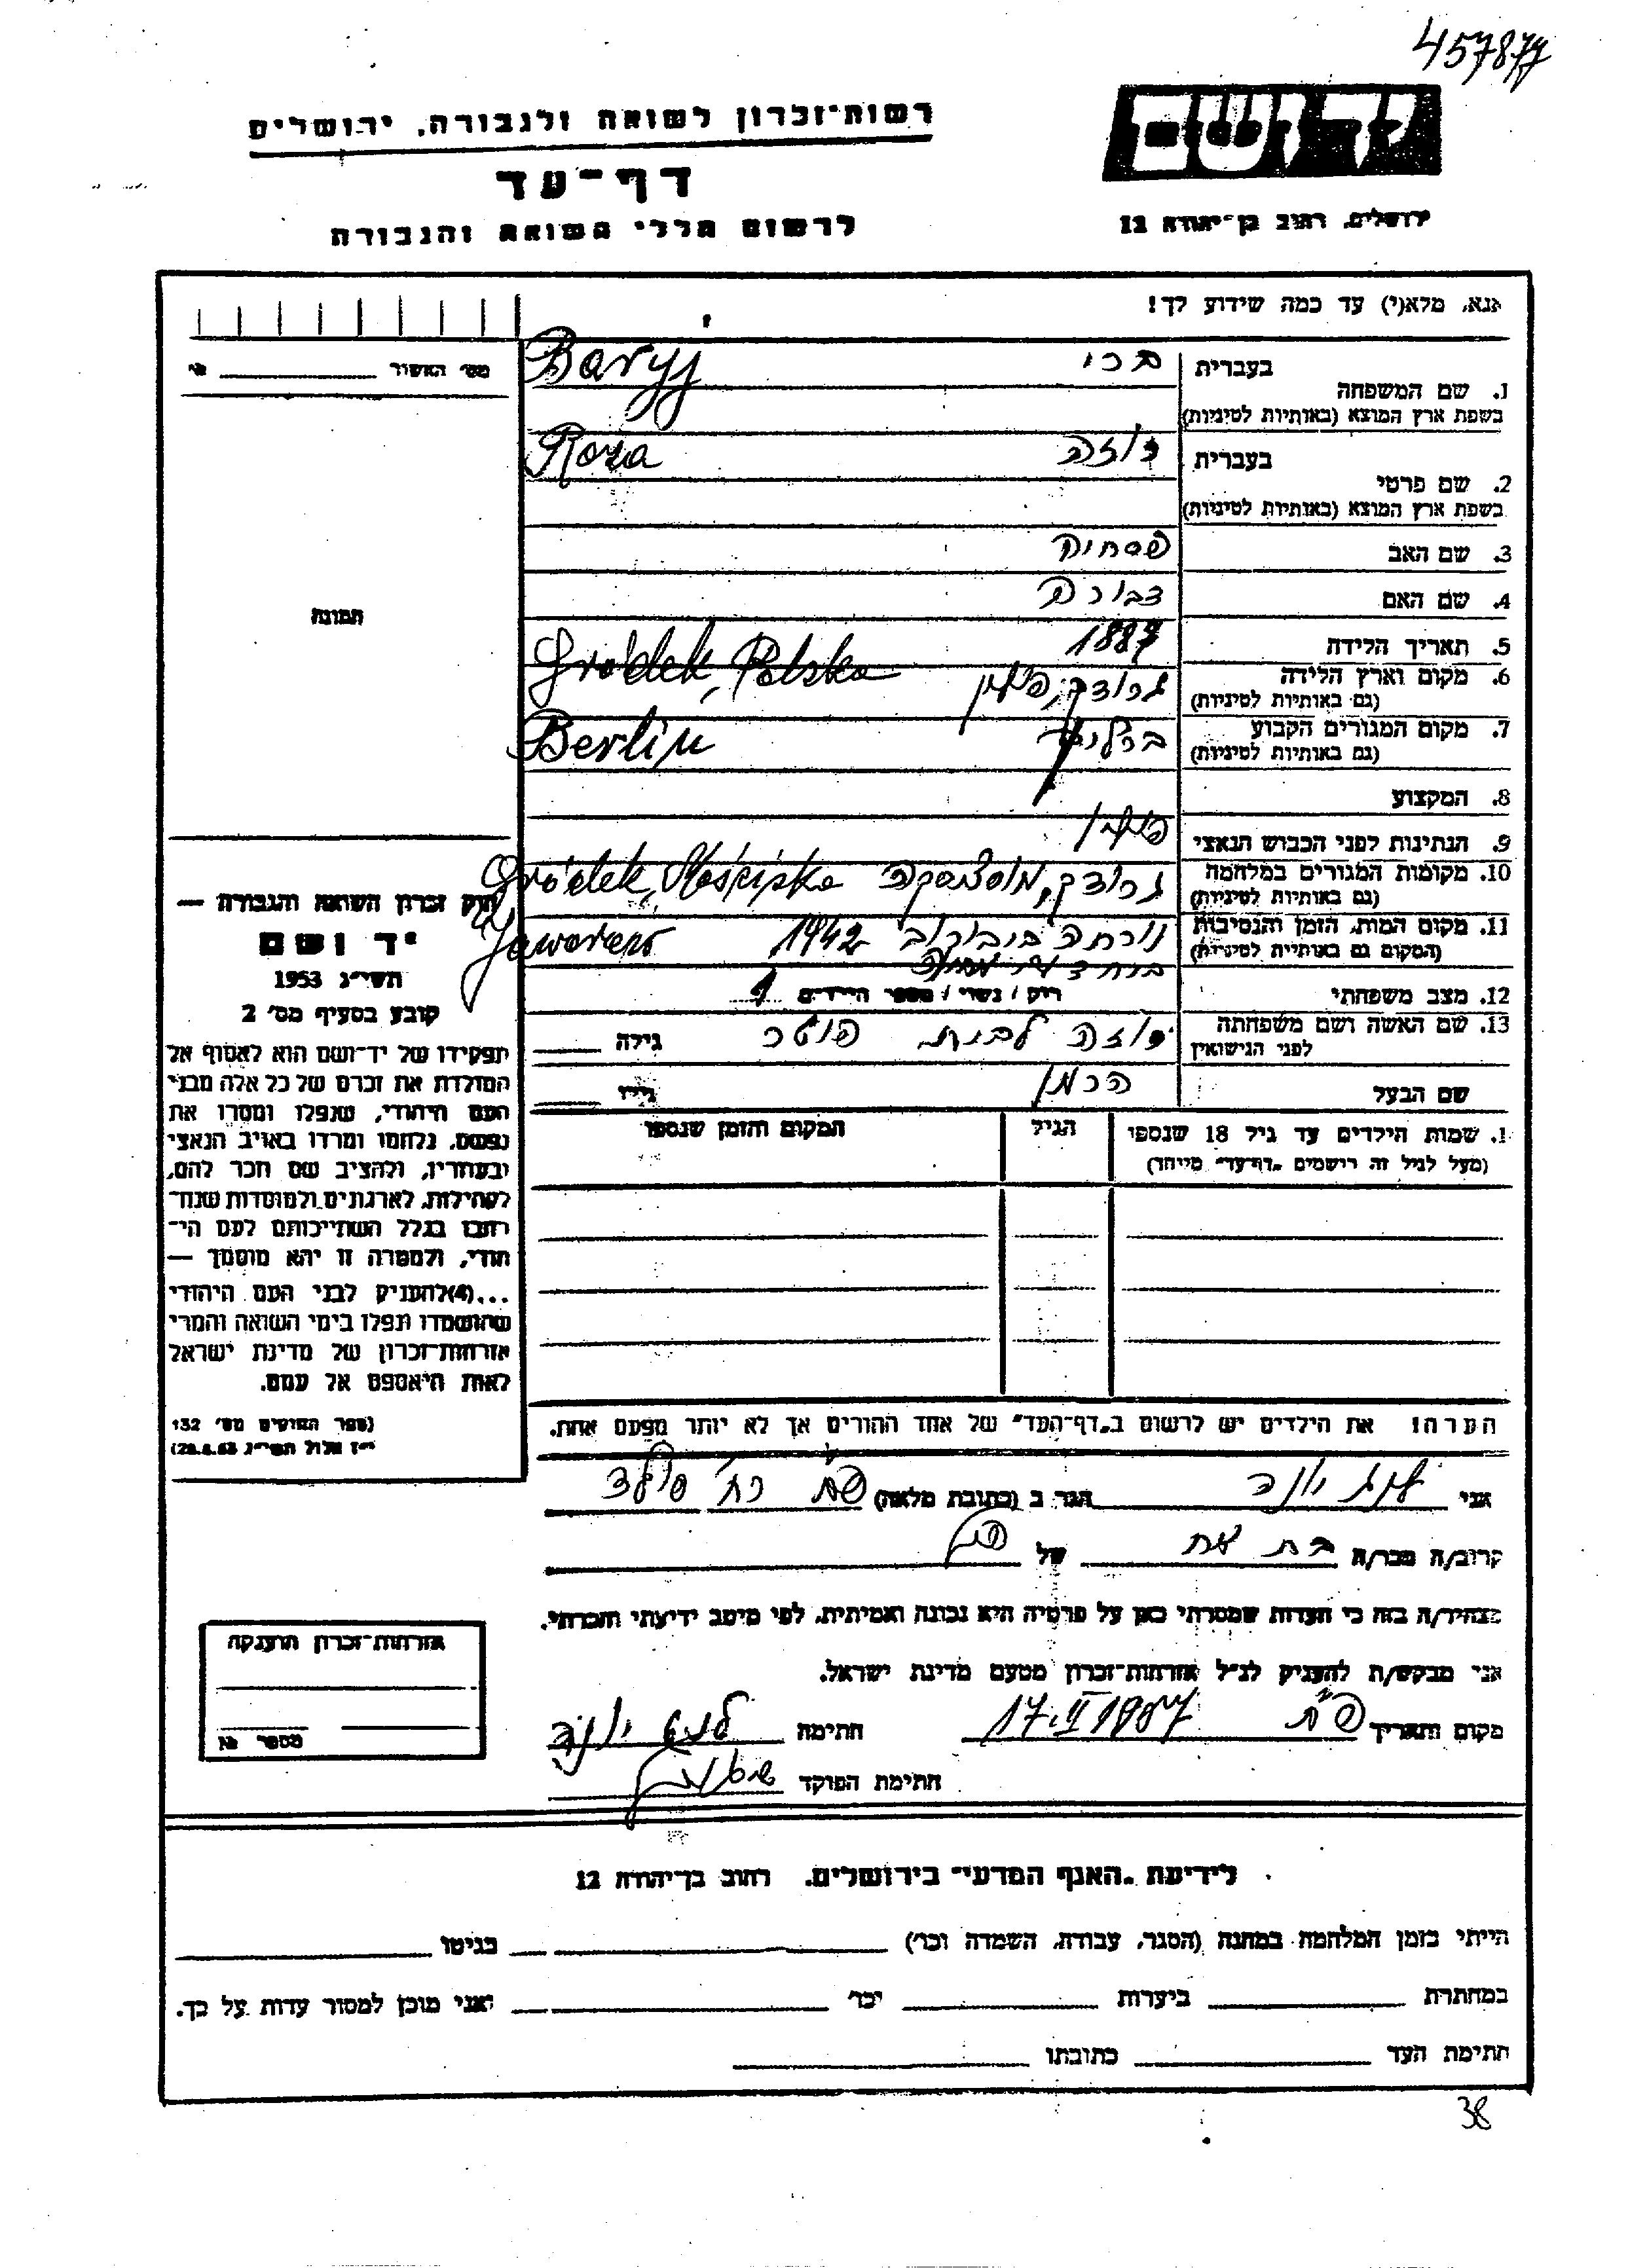 457877
יד ושם
רשות־זכרון לשואה ולגבורה, ירושלים
דף־עד
לרשום חללי השואה והגבורה
ירושלים, רחוב בן־יהודה 12
אנא, מלא(י) עד כמה שידוע לך!
מס׳ האשור № 
1. שם המשפחה בעברית ברי Baryj
בשפת ארץ המוצא (באותיות לטיניות)
2. שם פרטי בעברית רוזה Roza
בשפת ארץ המוצא (באותיות לטיניות)
3. שם האב
4. שם האם דבורה
5. תאריך הלידה 1887
6. מקום וארץ הלידה גרודק, פולין Gródek, Polska
(גם באותיות לטיניות)
7. מקום המגורים הקבוע ברלין Berlin
(גם באותיות לטיניות)
8. המקצוע
9. הנתינות לפני הכבוש הנאצי פולין
10. מקומות המגורים במלחמה גרודק, מוסציסקה Gródek, Mościska
(גם באותיות לטיניות)
11. מקום המות, הזמן והנסיבות נורתה ביבורוב 1942 Jaworow
(המקום גם באותיות לטיניות)
12. מצב משפחתי רוק / נשוי / מספר הילדים
13. שם האשה ושם משפחתה רוזה לבית גילה
לפני הנישואין
שם הבעל הרמן גילו
תמונה
חוק זכרון השואה והגבורה —
יד ושם
תשי״ג 1953
קובע בסעיף מס׳ 2
תפקידו של יד־ושם הוא לאסוף אל
המולדת את זכרם של כל אלה מבני
העם היהודי, שנפלו ומסרו את
נפשם, נלחמו ומרדו באויב הנאצי
ובעוזריו, ולהציב שם וזכר להם,
לקהילות, לארגונים ולמוסדות שנח־
רבו בגלל השתייכותם לעם הי־
הודי, ולמטרה זו יהא מוסמך —
...(4)להעניק לבני העם היהודי
שהושמדו ונפלו בימי השואה והמרי
אזרחות־זכרון של מדינת ישראל
לאות היאספם אל עמם.
(ספר החוקים מס׳ 132
י״ז אלול תשי״ג 28.8.53)
1. שמות הילדים עד גיל 18 שנספו הגיל המקום והזמן שנספו
(מעל לגיל זה רישמים „דף־עד״ מייחד)
הערה! את הילדים יש לרשום ב„דף־העד״ של אחד ההורים אך לא יותר מפעם אחת.
אני יונה הגר ב (כתובת מלאה) פ״ת רח׳
קרוב/ה מכר/ה בת אח של
מצהיר/ה בזה כי העדות שמסרתי כאן על פרטיה היא נכונה ואמיתית, לפי מיטב ידיעתי והכרתי.
אני מבקש/ת להעניק לנ״ל אזרחות־זכרון מטעם מדינת ישראל.
מקום ותאריך פ״ת 17.II 1957 חתימה
חתימת הפוקד
אזרחות־זכרון הוענקה
מספר №
לידיעת „האגף המדעי״ בירושלים, רחוב בן־יהודה 12
הייתי בזמן המלחמה במחנה (הסגר, עבודה, השמדה וכו׳) בגיטו
במחתרת ביערות וכו׳ ואני מוכן למסור עדות על כך.
חתימת העד כתובתו
38